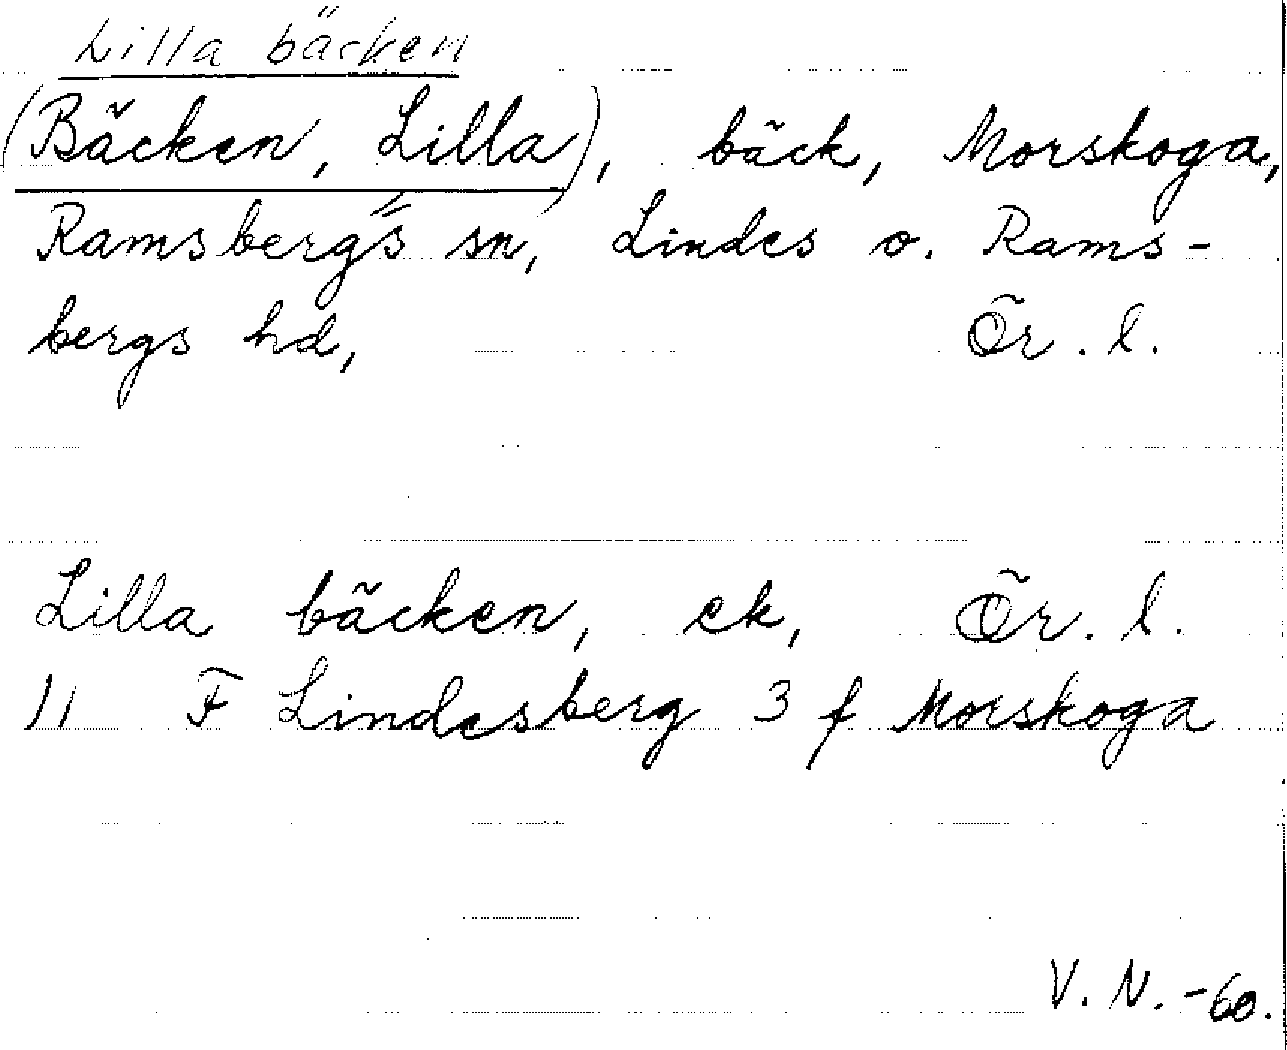 Lilla bäcken
(Bäcken, Lilla), bäck, Morskoga,
Ramsbergs sn, Lindes o. Rams-
bergs hd, Ör. l.
Lilla bäcken, ek, Ör. l.
11 F Lindesberg 3 f Morskoga
V. N. -60.